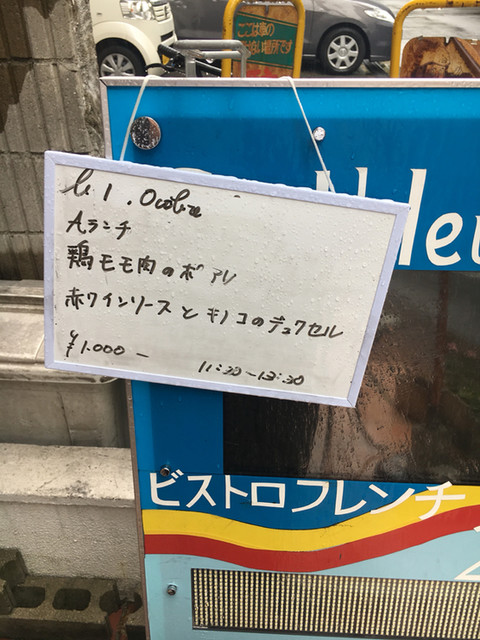 ここは車の
場所です
le 1. Octobre
Aランチ
鶏モモ肉のポアレ
赤ワインソースとキノコのデュクセル
¥1.000-
11:30-13:30
ビストロフレンチ